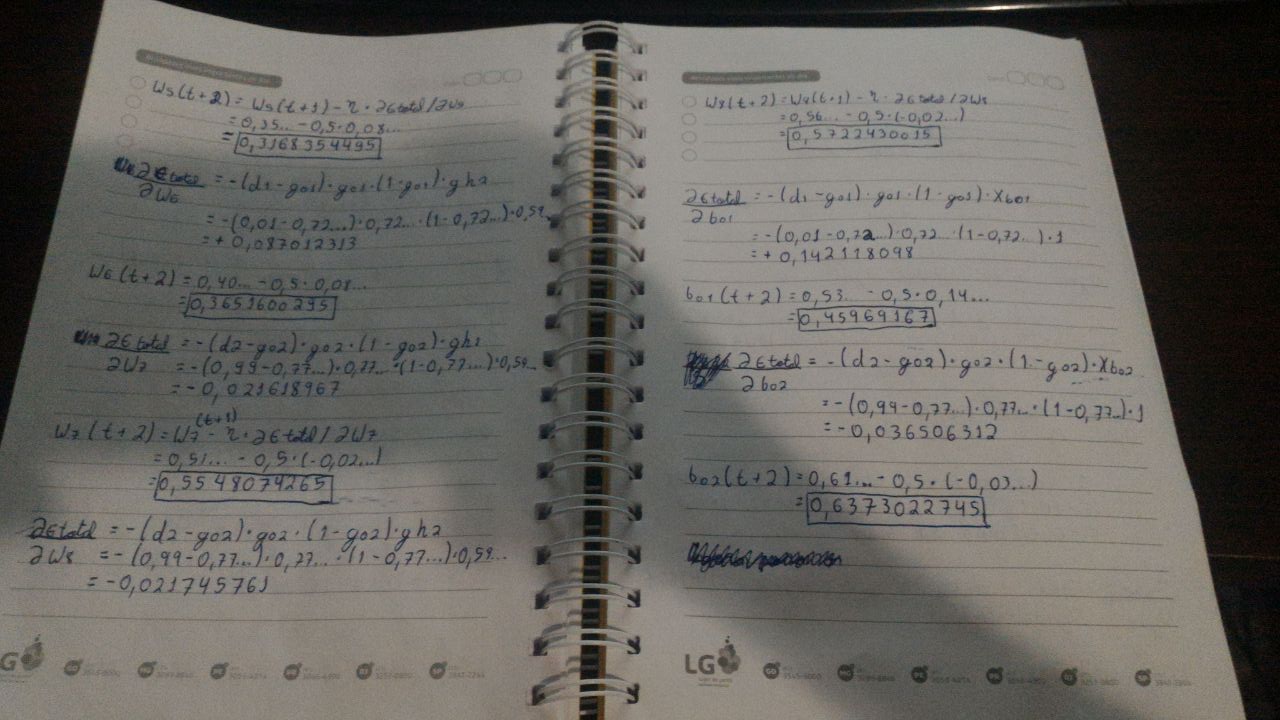 W5(t+2) = W5(t+1) - η · ∂Etotal/∂W5
= 0,35... - 0,5·0,08...
= 0,3168354495
∂Etotal/∂W6 = -(d1-go1)·go1·(1-go1)·gh2
= -(0,01-0,72...)·0,72...·(1-0,72...)·0,59...
= +0,087012313
W6(t+2) = 0,40... - 0,5·0,08...
= 0,3651600295
∂Etotal/∂W7 = -(d2-go2)·go2·(1-go2)·gh1
= -(0,99-0,77...)·0,77...·(1-0,77...)·0,59...
= -0,021618967
W7(t+2) = W7(t+1) - η·∂Etotal/∂W7
= 0,51... - 0,5·(-0,02...)
= 0,5548074265
∂Etotal/∂W8 = -(d2-go2)·go2·(1-go2)·gh2
= -(0,99-0,77...)·0,77...·(1-0,77...)·0,59...
= -0,021745761
W8(t+2) = W8(t+1) - η·∂Etotal/∂W8
= 0,56... - 0,5·(-0,02...)
= 0,5722430015
∂Etotal/∂bo1 = -(d1-go1)·go1·(1-go1)·Xbo1
= -(0,01-0,72...)·0,72...·(1-0,72...)·1
= +0,142118098
bo1(t+2) = 0,53... - 0,5·0,14...
= 0,45969167
∂Etotal/∂bo2 = -(d2-go2)·go2·(1-go2)·Xbo2
= -(0,99-0,77...)·0,77...·(1-0,77...)·1
= -0,036506312
bo2(t+2) = 0,61... - 0,5·(-0,03...)
= 0,6373022745
LG